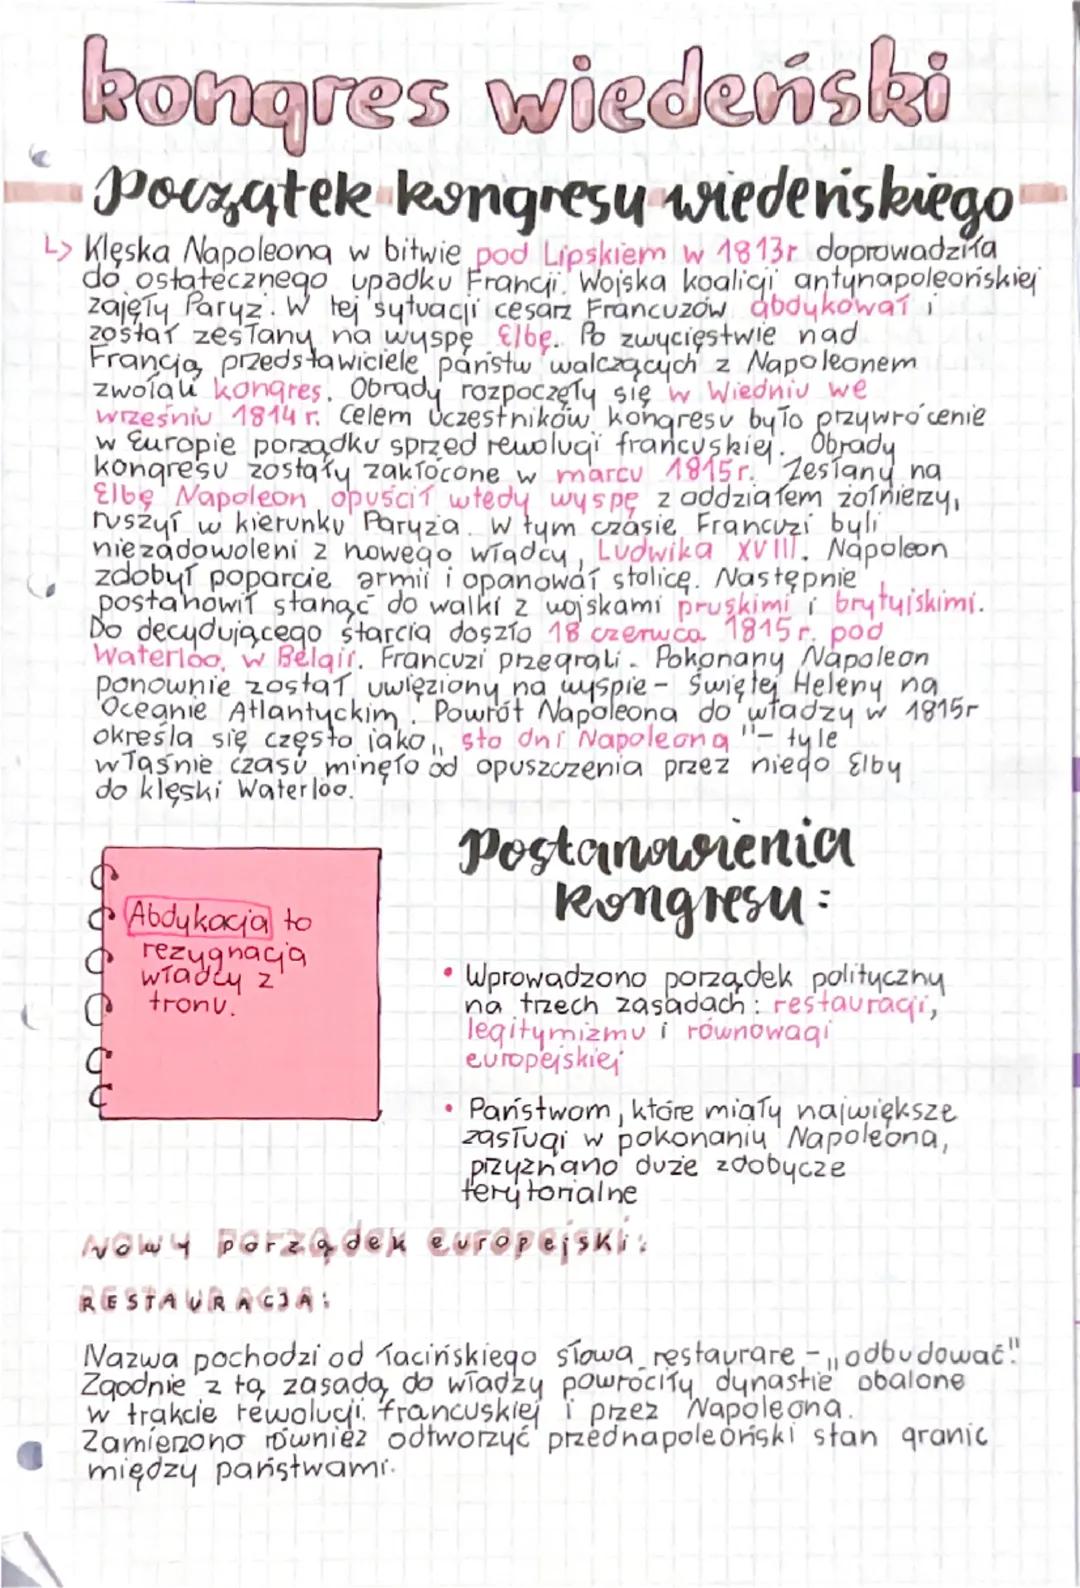 kongres wiedeński
Początek kongresu wiedeńskiego
↳ Klęska Napoleona w bitwie pod Lipskiem w 1813r doprowadziła
do ostatecznego upadku Francji. Wojska koalicji antynapoleońskiej
zajęły Paryż. W tej sytuacji cesarz Francuzów abdykował i
został zesłany na wyspę Elbę. Po zwycięstwie nad
Francją, przedstawiciele państw walczących z Napoleonem
zwołali kongres. Obrady rozpoczęły się w Wiedniu we
wrześniu 1814 r. Celem uczestników kongresu było przywrócenie
w Europie porządku sprzed rewolucji francuskiej. Obrady
kongresu zostały zakłócone w marcu 1815r. Zesłany na
Elbę Napoleon opuścił wtedy wyspę z oddziałem żołnierzy,
ruszył w kierunku Paryża. W tym czasie Francuzi byli
niezadowoleni z nowego władcy, Ludwika XVIII. Napoleon
zdobył poparcie armii i opanował stolicę. Następnie
postanowił stanąć do walki z wojskami pruskimi i brytyjskimi.
Do decydującego starcia doszło 18 czerwca 1815 r. pod
Waterloo, w Belgii. Francuzi przegrali. Pokonany Napoleon
ponownie został uwięziony na wyspie - Świętej Heleny na
Oceanie Atlantyckim. Powrót Napoleona do władzy w 1815r
określa się często jako „sto dni Napoleona" - tyle
właśnie czasu minęło od opuszczenia przez niego Elby
do klęski Waterloo.
Abdykacja to
rezygnacja
władcy z
tronu.
Postanowienia
kongresu:
• Wprowadzono porządek polityczny
na trzech zasadach: restauracji,
legitymizmu i równowagi
europejskiej
• Państwom, które miały największe
zasługi w pokonaniu Napoleona,
przyznano duże zdobycze
terytorialne
Nowy porządek europejski:
RESTAURACJA:
Nazwa pochodzi od łacińskiego słowa restaurare - „odbudować"
Zgodnie z tą zasadą do władzy powróciły dynastie obalone
w trakcie rewolucji francuskiej i przez Napoleona.
Zamierzono również odtworzyć przednapoleoński stan granic
między państwami.